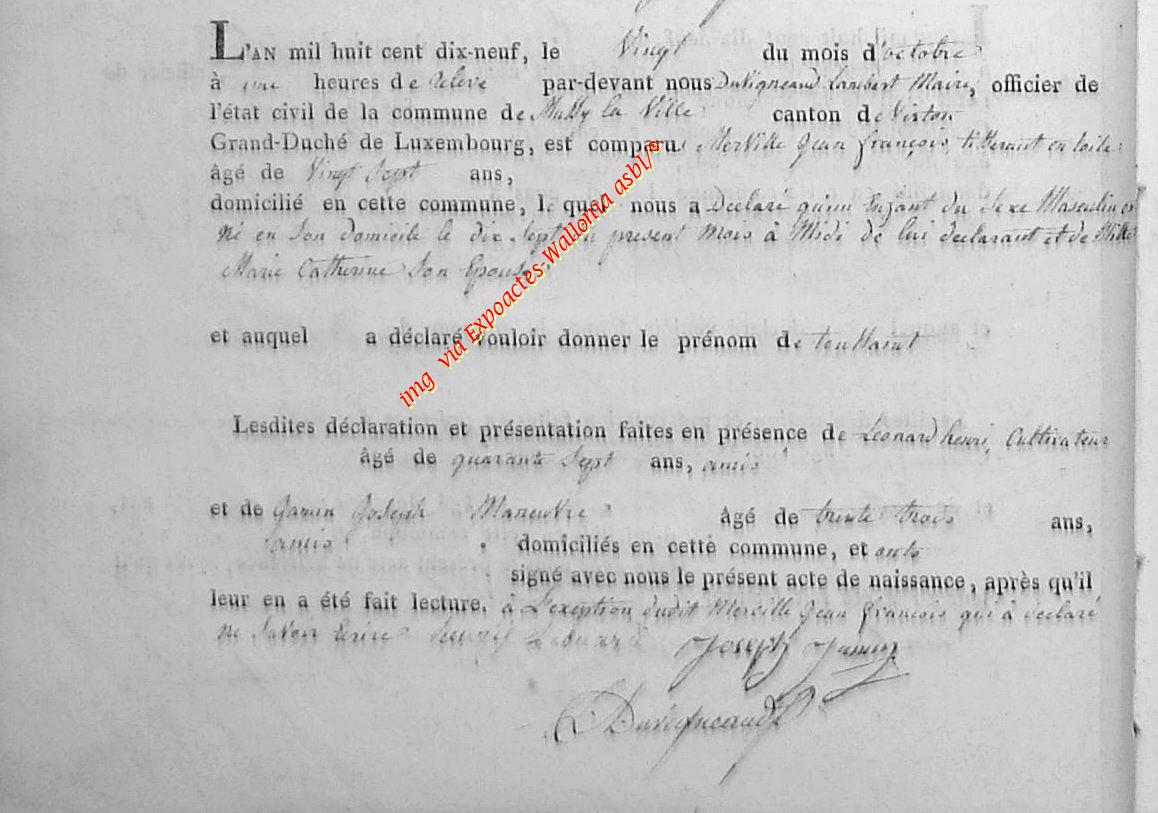 L'AN mil huit cent dix-neuf, le Vingt du mois d'octobre
à une heures de Relevé par-devant nous Duvigneaud Lambert Maire, officier de
l'état civil de la commune de Mussy la Ville canton de Virton
Grand-Duché de Luxembourg, est comparu Merville Jean françois, tisserant en toile
âgé de Vingt Sept ans,
domicilié en cette commune, lequel nous a Declaré qu'un Enfant du Sexe Masculin est
né en Son domicile le dix Sept du present Mois à Midi de lui declarant et de
Marie Catherine Son Epouse
et auquel a déclaré vouloir donner le prénom de toussaint
Lesdites déclaration et présentation faites en présence de Leonard henri, Cultivateur
âgé de quarante Sept ans, amis
et de Jamin Joseph Maneuvre âgé de trente trois ans,
amis domiciliés en cette commune, et ont
signé avec nous le présent acte de naissance, après qu'il
leur en a été fait lecture. à L'exeption dudit Merville Jean francois qui à declaré
ne Savoir Ecrire Joseph Jamin
Duvigneaud
img via Expoactes-Wallonia asbl/